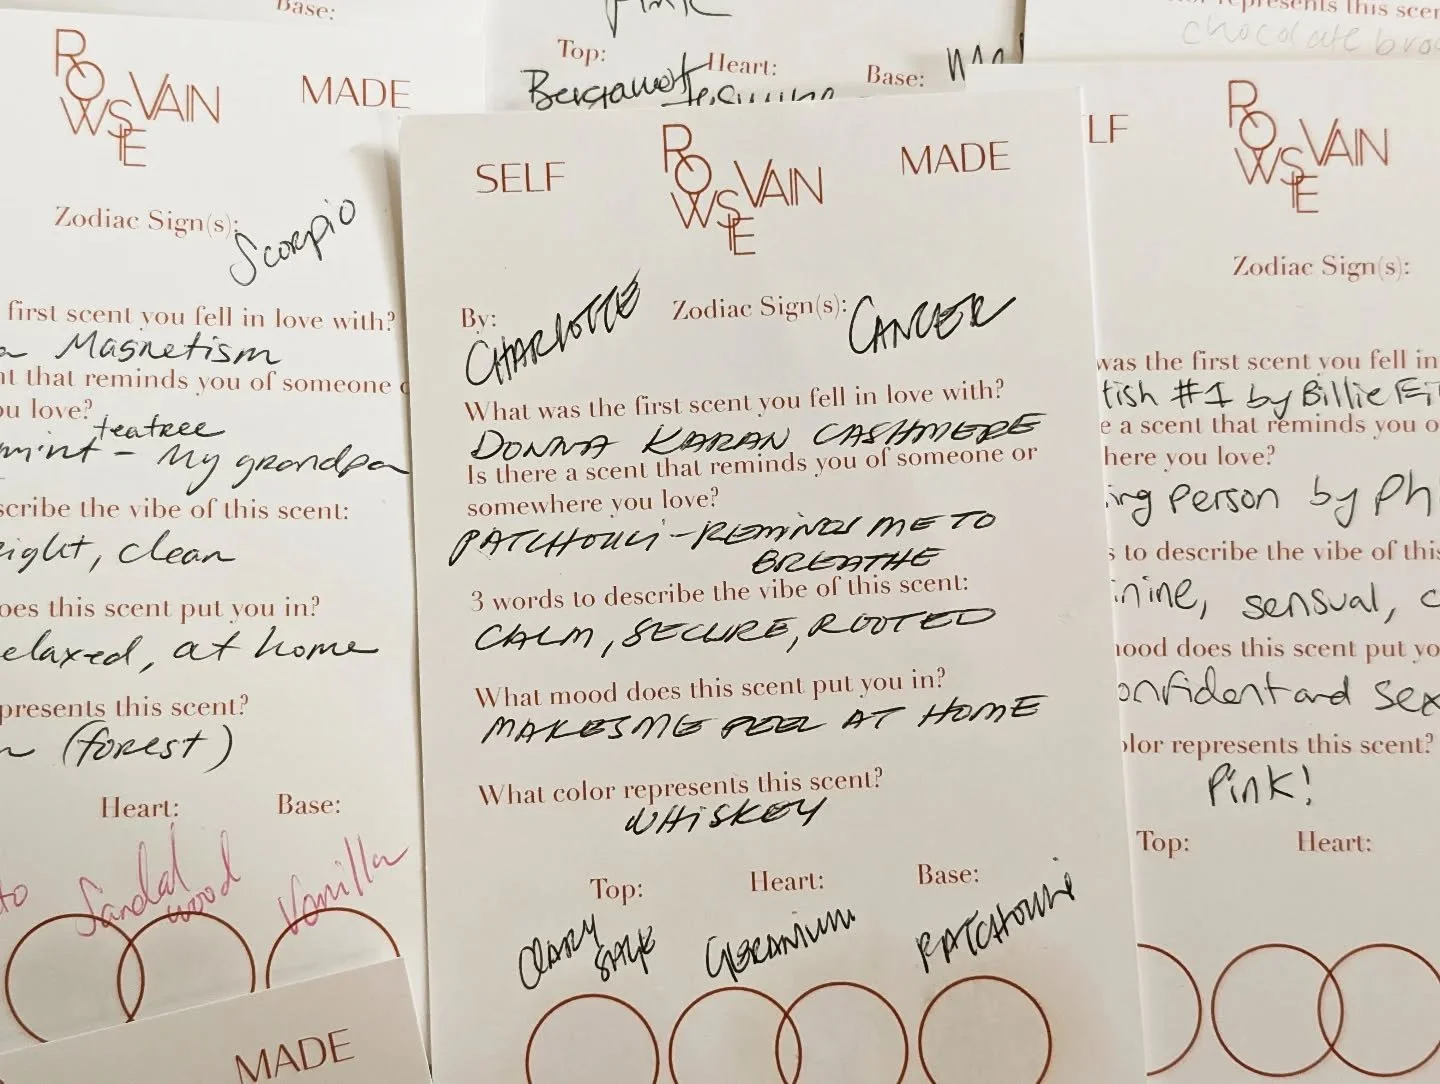 Base:
ROWSIE VAIN
MADE
Zodiac Sign(s):
Scorpio
first scent you fell in love with?
Magnetism
that reminds you of someone
love?
teatree
mint - My grandpa
the vibe of this scent:
clean
this scent put you in?
relaxed, at home
this scent?
(forest)
Heart:
Base:
Sandal
wood
Vanilla
MADE
Pink
Top:
Heart:
Base:
Bergamot
SELF
ROWSIE VAIN
MADE
By:
CHARLOTTE
Zodiac Sign(s):
CANCER
What was the first scent you fell in love with?
DONNA KARAN CASHMERE
Is there a scent that reminds you of someone or
somewhere you love?
PATCHOULI - REMINDS ME TO
BREATHE
3 words to describe the vibe of this scent:
CALM, SECURE, ROOTED
What mood does this scent put you in?
MAKES ME FEEL AT HOME
What color represents this scent?
WHISKEY
Top:
Heart:
Base:
CLARY
SAGE
GERANIUM
PATCHOULI
represents this
chocolate
ROWSIE VAIN
Zodiac Sign(s):
was the first scent you fell in
#1 by Billie
a scent that reminds you
you love?
Person by
to describe the vibe of
sensual,
does this scent put
and
represents this scent?
Pink!
Top:
Heart: